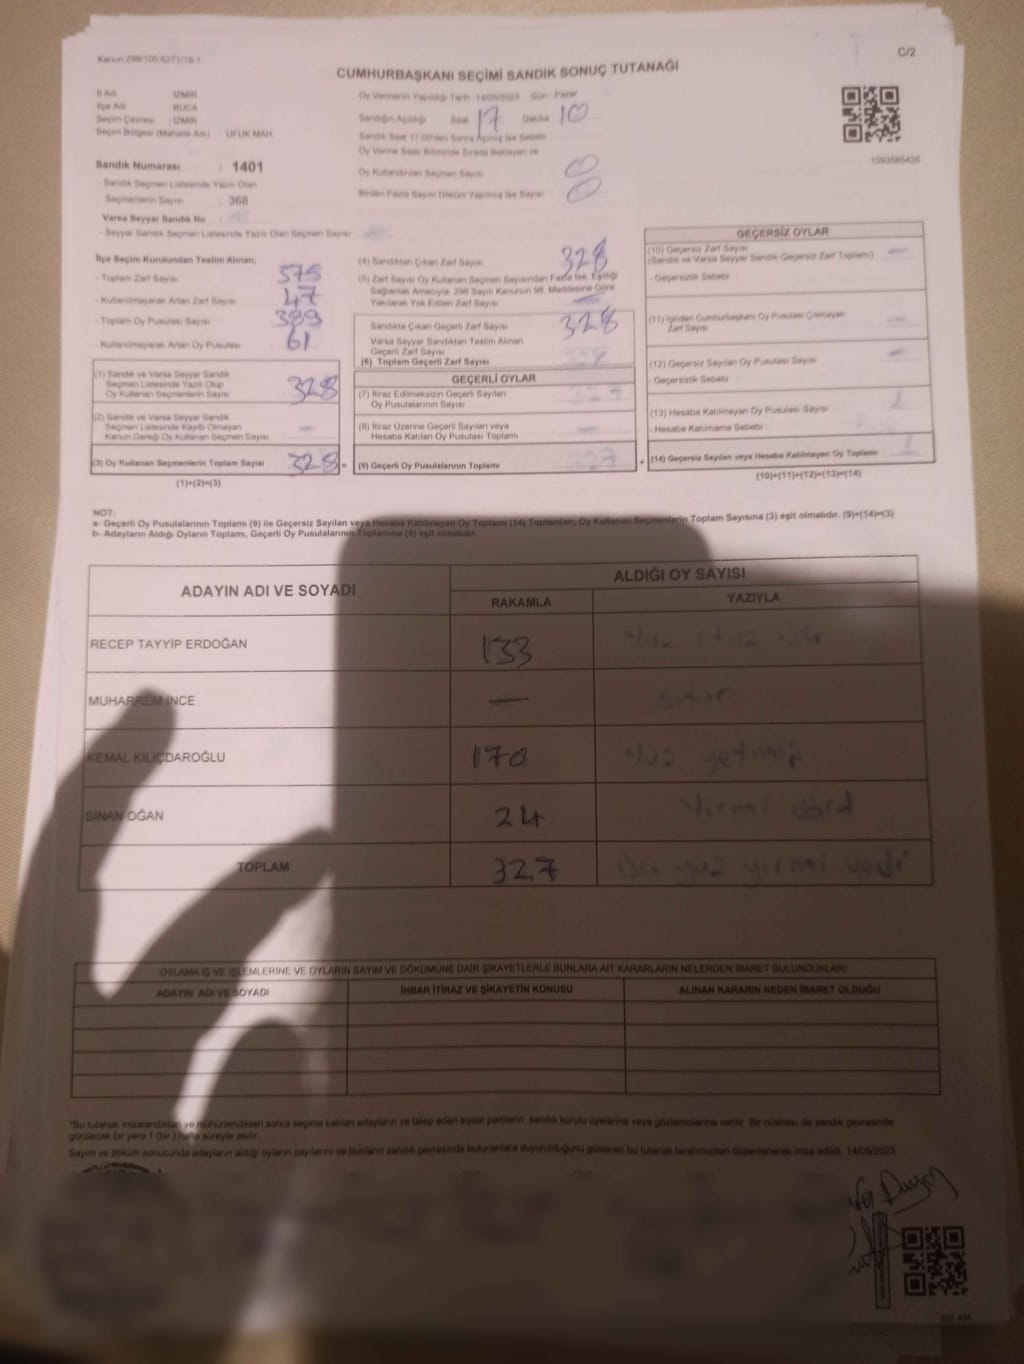 Kanun:298/105,6271/18-1
C/2
CUMHURBAŞKANI SEÇİMİ SANDIK SONUÇ TUTANAĞI
İl Adı : İZMİR
İlçe Adı : BUCA
Seçim Çevresi : İZMİR
Seçim Bölgesi (Mahalle Adı) : UFUK MAH.
Oy Vermenin Yapıldığı Tarih 14/05/2023 Gün: Pazar
Sandığın Açıldığı Saat 17 Dakika 10
Sandık Saat 17.00'den Sonra Açılmış İse Sebebi
Oy Verme Saati Bitiminde Sırada Bekleyen ve
Oy Kullandırılan Seçmen Sayısı 0
Birden Fazla Sayım Döküm Yapılmış İse Sayısı 0
1093585435
Sandık Numarası : 1401
- Sandık Seçmen Listesinde Yazılı Olan
Seçmenlerin Sayısı : 368
Varsa Seyyar Sandık No :
- Seyyar Sandık Seçmen Listesinde Yazılı Olan Seçmen Sayısı
İlçe Seçim Kurulundan Teslim Alınan;
- Toplam Zarf Sayısı 575
- Kullanılmayarak Artan Zarf Sayısı 47
- Toplam Oy Pusulası Sayısı 389
- Kullanılmayarak Artan Oy Pusulası 61
(1) Sandık ve Varsa Seyyar Sandık
Seçmen Listesinde Yazılı Olup
Oy Kullanan Seçmenlerin Sayısı 328
(2) Sandık ve Varsa Seyyar Sandık
Seçmen Listesinde Kayıtlı Olmayan
Kanun Gereği Oy Kullanan Seçmen Sayısı –
(3) Oy Kullanan Seçmenlerin Toplam Sayısı 328 =
(1)+(2)=(3)
(4) Sandıktan Çıkan Zarf Sayısı 328
(5) Zarf Sayısı Oy Kullanan Seçmen Sayısından Fazla İse, Eşitliği
Sağlamak Amacıyla, 298 Sayılı Kanunun 98. Maddesine Göre
Yakılarak Yok Edilen Zarf Sayısı –
Sandıkta Çıkan Geçerli Zarf Sayısı 328
Varsa Seyyar Sandıktan Teslim Alınan
Geçerli Zarf Sayısı
(6) Toplam Geçerli Zarf Sayısı 328
GEÇERLİ OYLAR
(7) İtiraz Edilmeksizin Geçerli Sayılan
Oy Pusulalarının Sayısı 327
(8) İtiraz Üzerine Geçerli Sayılan veya
Hesaba Katılan Oy Pusulası Toplamı –
(9) Geçerli Oy Pusulalarının Toplamı 327 +
GEÇERSİZ OYLAR
(10) Geçersiz Zarf Sayısı –
(Sandık ve Varsa Seyyar Sandık Geçersiz Zarf Toplamı)
- Geçersizlik Sebebi :
(11) İçinden Cumhurbaşkanı Oy Pusulası Çıkmayan
Zarf Sayısı –
(12) Geçersiz Sayılan Oy Pusulası Sayısı –
- Geçersizlik Sebebi :
(13) Hesaba Katılmayan Oy Pusulası Sayısı 1
- Hesaba Katılmama Sebebi :
(14) Geçersiz Sayılan veya Hesaba Katılmayan Oy Toplamı 1
(10)+(11)+(12)+(13)=(14)
NOT:
a- Geçerli Oy Pusulalarının Toplamı (9) ile Geçersiz Sayılan veya Hesaba Katılmayan Oy Toplamı (14) Toplamları, Oy Kullanan Seçmenlerin Toplam Sayısına (3) eşit olmalıdır. (9)+(14)=(3)
b- Adayların Aldığı Oyların Toplamı, Geçerli Oy Pusulalarının Toplamına (9) eşit olmalıdır.
ADAYIN ADI VE SOYADI
ALDIĞI OY SAYISI
RAKAMLA YAZIYLA
RECEP TAYYİP ERDOĞAN 133
MUHARREM İNCE —
KEMAL KILIÇDAROĞLU 170 yüz yetmiş
SİNAN OĞAN 24 Yirmi dört
TOPLAM 327 yüz yirmi yedi
OYLAMA İŞ VE İŞLEMLERİNE VE OYLARIN SAYIM VE DÖKÜMÜNE DAİR ŞİKAYETLERLE BUNLARA AİT KARARLARIN NELERDEN İBARET BULUNDUKLARI
ADAYIN ADI VE SOYADI İHBAR İTİRAZ VE ŞİKAYETİN KONUSU ALINAN KARARIN NEDEN İBARET OLDUĞU
"Bu tutanak imzalandıktan ve mühürlendikten sonra seçime katılan adayların ve talep eden siyasi partilerin sandık kurulu üyelerine veya gözlemcilerine verilir. Bir nüshası da sandık çevresinde
görülecek bir yere 1 (bir) hafta süreyle asılır.
Sayım ve döküm sonucunda adayların aldığı oyların sayılarını ve bunların sandık çevresinde bulunanlara duyurulduğunu gösteren bu tutanak tarafımızdan düzenlenerek imza edildi. 14/05/2023